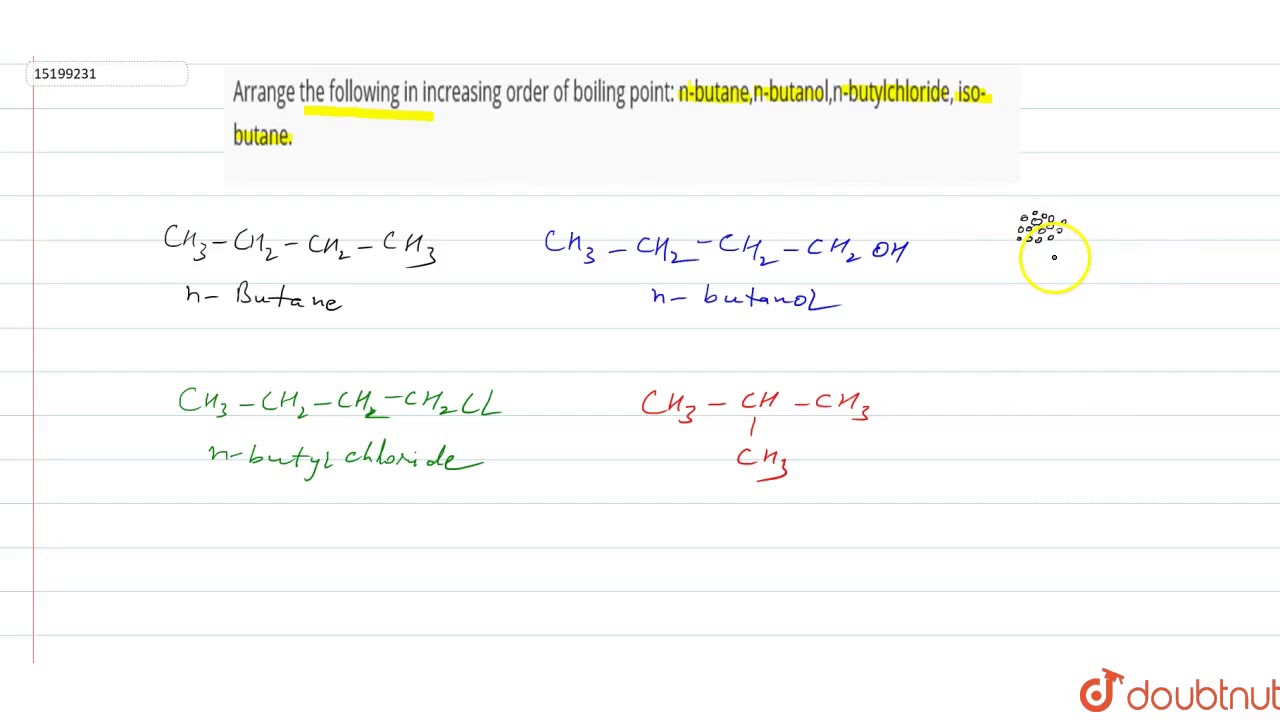 15199231
Arrange the following in increasing order of boiling point: n-butane,n-butanol,n-butylchloride, iso-
butane.
CH3 – CH2 – CH2 – CH3
n – Butane
CH3 – CH2 – CH2 – CH2 OH
n – butanol
CH3 – CH2 – CH2 – CH2 Cl
n-butyl chloride
CH3 – CH – CH3
|
CH3
doubtnut